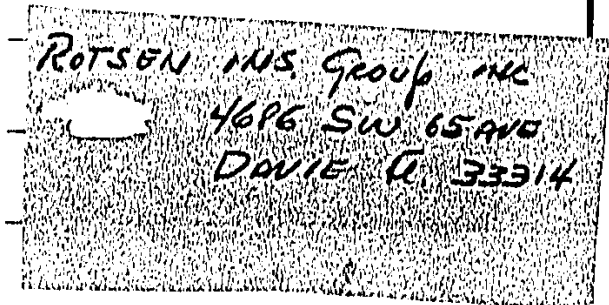 ROTSEN INS. Group INC
4686 SW 65 AVE
DAVIE Fl 33314